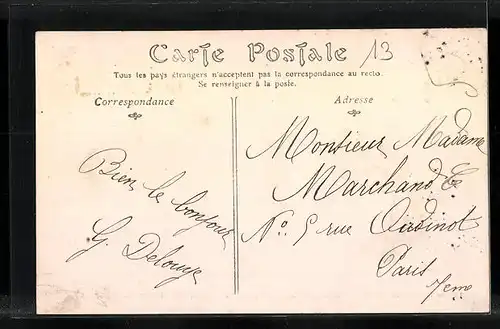 Carte Postale
13
Tous les pays étrangers n'acceptent pas la correspondance au recto.
Se renseigner à la poste.
Correspondance
Adresse
Bien le bonjour
G. Delouye
Monsieur Madame
Marchand
No. 5 rue Oudinot
Paris
7eme